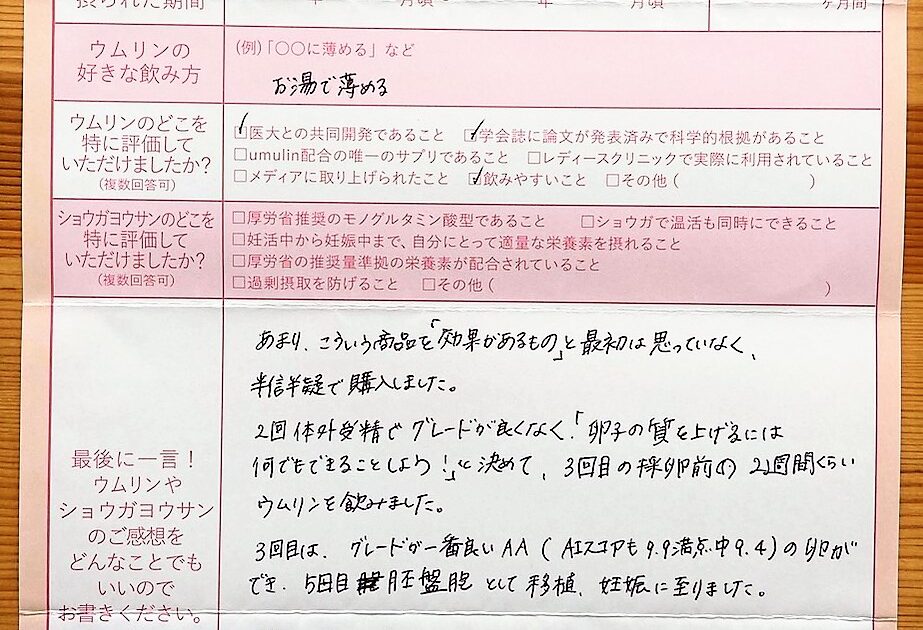 摂られた期間
年 月頃 年 月頃 ヶ月間
ウムリンの
好きな飲み方
(例)「〇〇に薄める」など
お湯で薄める
ウムリンのどこを
特に評価して
いただけましたか?
(複数回答可)
☑医大との共同開発であること ☑学会誌に論文が発表済みで科学的根拠があること
□umulin配合の唯一のサプリであること □レディースクリニックで実際に利用されていること
□メディアに取り上げられたこと ☑飲みやすいこと □その他( )
ショウガヨウサンのどこを
特に評価して
いただけましたか?
(複数回答可)
□厚労省推奨のモノグルタミン酸型であること □ショウガで温活も同時にできること
□妊活中から妊娠中まで、自分にとって適量な栄養素を摂れること
□厚労省の推奨量準拠の栄養素が配合されていること
□過剰摂取を防げること □その他( )
最後に一言!
ウムリンや
ショウガヨウサン
のご感想を
どんなことでも
いいので
お書きください。
あまり、こういう商品を「効果があるもの」と最初は思っていなく、
半信半疑で購入しました。
2回体外受精でグレードが良くなく!「卵子の質を上げるには
何でもできることしよう!」と決めて、3回目の採卵前の2週間くらい
ウムリンを飲みました。
3回目は、グレードが一番良いAA(AIスコアも9.9満点中9.4)の卵が
でき、5日目胚盤胞として移植、妊娠に至りました。